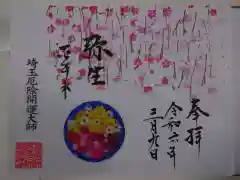 奉拝
令和六年
三月九日
弥生
埼玉厄除開運大師